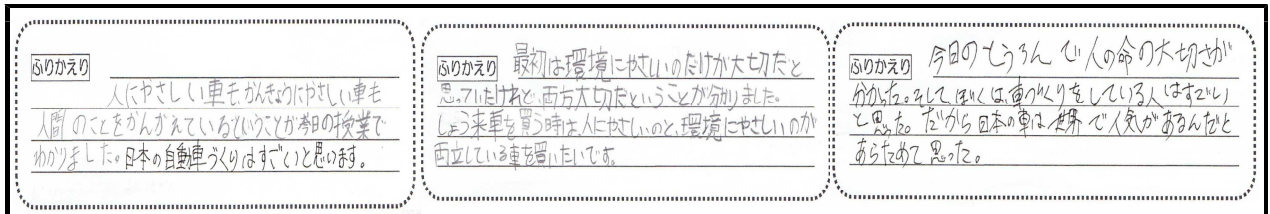 ふりかえり
人にやさしい車も、かんきょうにやさしい車も
人間のことをかんがえているということが今日の授業で
わかりました。日本の自動車づくりはすごいと思います。
ふりかえり 最初は環境にやさしいのだけが大切だと
思っていたけれど、両方大切だということが分かりました。
しょう来車を買う時は、人にやさしいのと、環境にやさしいのが
両立している車を買いたいです。
ふりかえり 今日のとうろんで人の命の大切さが
分かった。そして、ぼくは、車づくりをしている人はすごい
と思った。だから日本の車は世界で人気があるんだと
あらためて思った。